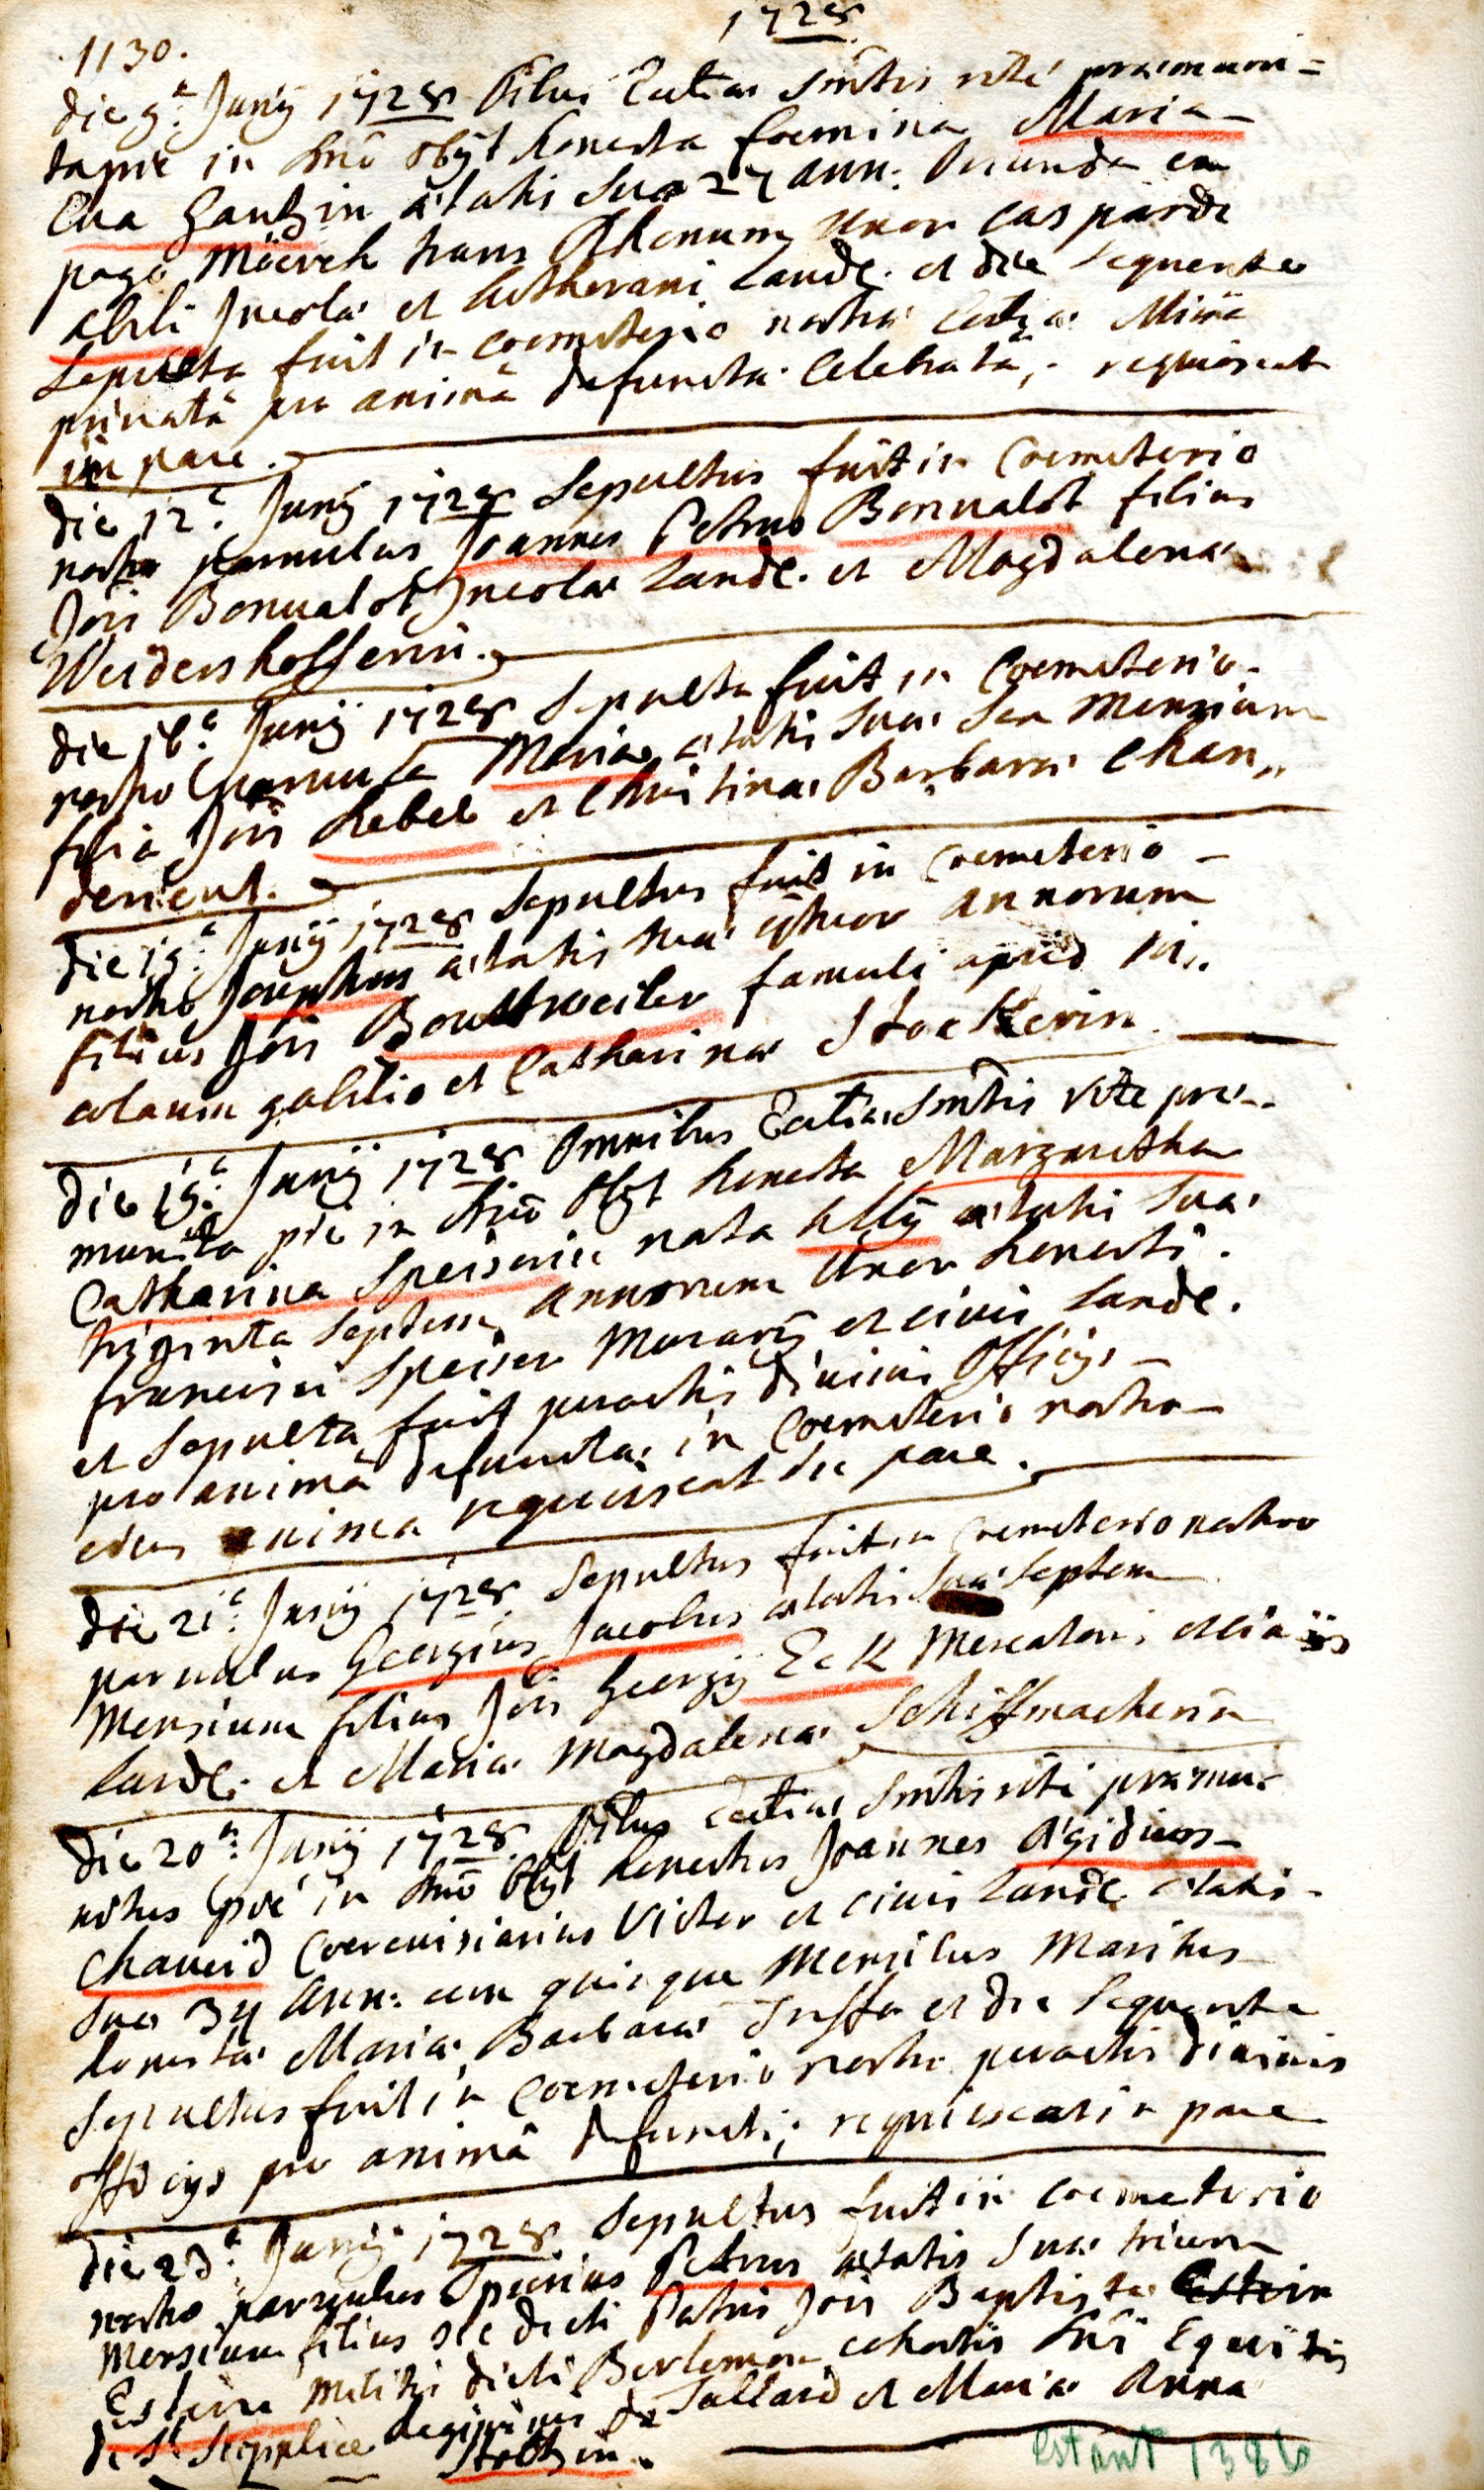 1728
1130.
die 9.a Junÿ 1728 oibus Eccliae Smtis rité praemuni=
ta pie in dnõ obÿt honesta foemina Maria
Eva Gantzin aetatis suae 27 ann: oriunda ex
pago Möerch trans Rhenum uxor Caspardi
abili Incolae et Lutherani Landl. et die sequente
sepulta fuit in coemeterio nostro Missa
privatâ pro animâ defunctae celebratâ, requiescat
in pace.
die 12.a Junÿ 1728 sepultus fuit in Coemeterio
nostro parvulus Joannes Petrus Bonvalot filius
Jõis Bonvalot Incolae Land. et Magdalenae
Weidenhofferin.
die 18.a Junÿ 1728 sepulta fuit in Coemeterio
nostro parvula Maria aetatis suae sex Mensium
filia Jõis Hebel et Christinae Barbarae Chan„
derient.
die 19.a Junÿ 1728 sepultus fuit in Coemeterio
nostro Josephus aetatis suae annorum
filius Jõis Bouttweiler famuli apud in„
colarum et Catharinae Stockerin.
die 19.a Junÿ 1728 omnibus Eccliae Smtis rite prae„
munita pie in dnõ obÿt honesta Margaretha
Catharina Speiserin nata aetatis suae
triginta septem annorum uxor honesti
francisci Speiser Murarÿ et civis Landl.
et sepulta fuit peractis divinis officÿs
pro animâ defunctae in Coemeterio nostro
eius anima requiescat in pace.
die 21.a Junÿ 1728 sepultus fuit in Coemeterio nostro
parvulus Georgius Jacobus aetatis suae septem
Mensium filius Jõis Georgÿ Eck Mercatoris et civis
Landl. et Mariae Magdalenae Schiffmacherin
die 20.a Junÿ 1728 oibus Eccliae Smtis rité praemu„
nitus pié in dnõ obÿt honestus Joannes Aegidius
Chauvid Coerevisiarius Victor et civis Landl. aetatis
suae 34 ann: cum quinque Mensibus Maritus
honestae Mariae Barbarae et die sequente
sepultus fuit in Coemeterio nostro peractis divinis
officÿs pro animâ defuncti; requiescat in pace
die 23.a Junÿ 1728 sepultus fuit in coemeterio
nostro parvulus spurius Petrus aetatis suae trium
Mensium filius sic dicti Patris Jõis Baptistae
Esteive Militis dicti Berlemon cohortis Dni Equitis
de St. Supplice Regiminis de Tallard et Maria Anna
Stoltzin.
estant 1386